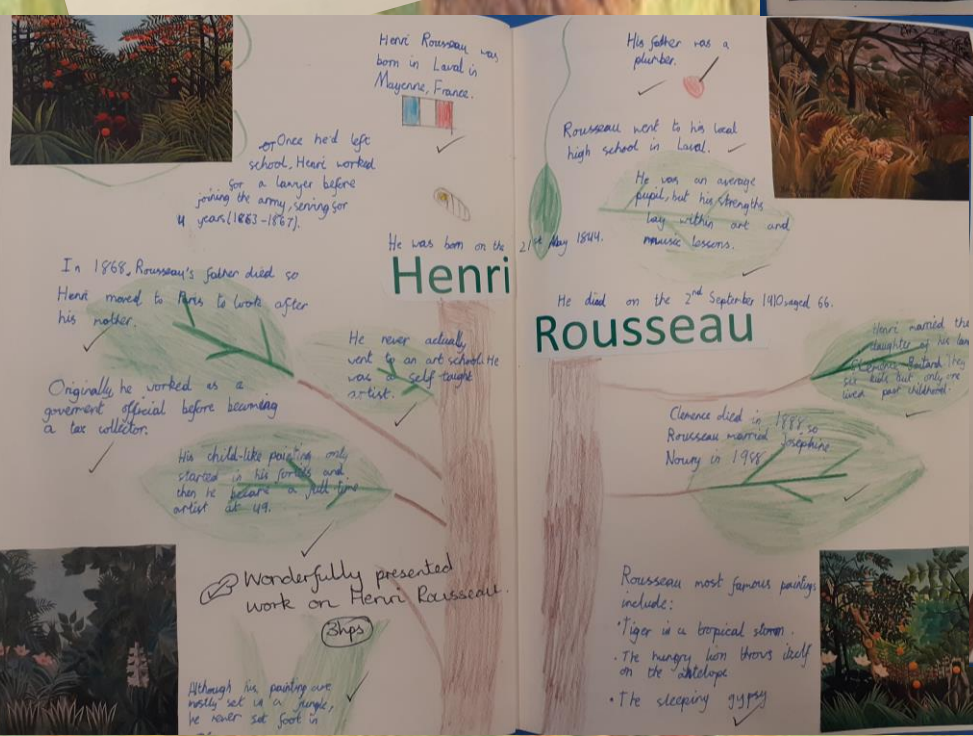 Henri Rousseau was
born in Laval in
Mayenne, France.
Once he'd left
school, Henri worked
for a lawyer before
joining the army, serving for
4 years (1863-1867).
He was born on the 21st May 1844.
Henri
In 1868, Rousseau's father died so
Henri moved to Paris to look after
his mother.
He never actually
went to an art school. He
was a self taught
artist.
Originally he worked as a
goverment official before becoming
a tax collector.
His child-like painting only
started in his forties and
then he became a full-time
artist at 49.
Wonderfully presented
work on Henri Rousseau.
3hps
Although his painting are
mostly set in a jungle,
he never set foot in
His father was a
plumber.
Rousseau went to his local
high school in Laval.
He was an average
pupil, but his strengths
lay within art and
music lessons.
He died on the 2nd September 1910, aged 66.
Rousseau
Henri married the
daughter of his
Clemence They
six kids but only one
lived past childhood
Clemence died in 1888 so
Rousseau married Josephine
Noury in 1988
Rousseau most famous paintings
include:
• Tiger in a tropical storm.
• The hungry lion throws itself
on the antelope
• The sleeping gypsy